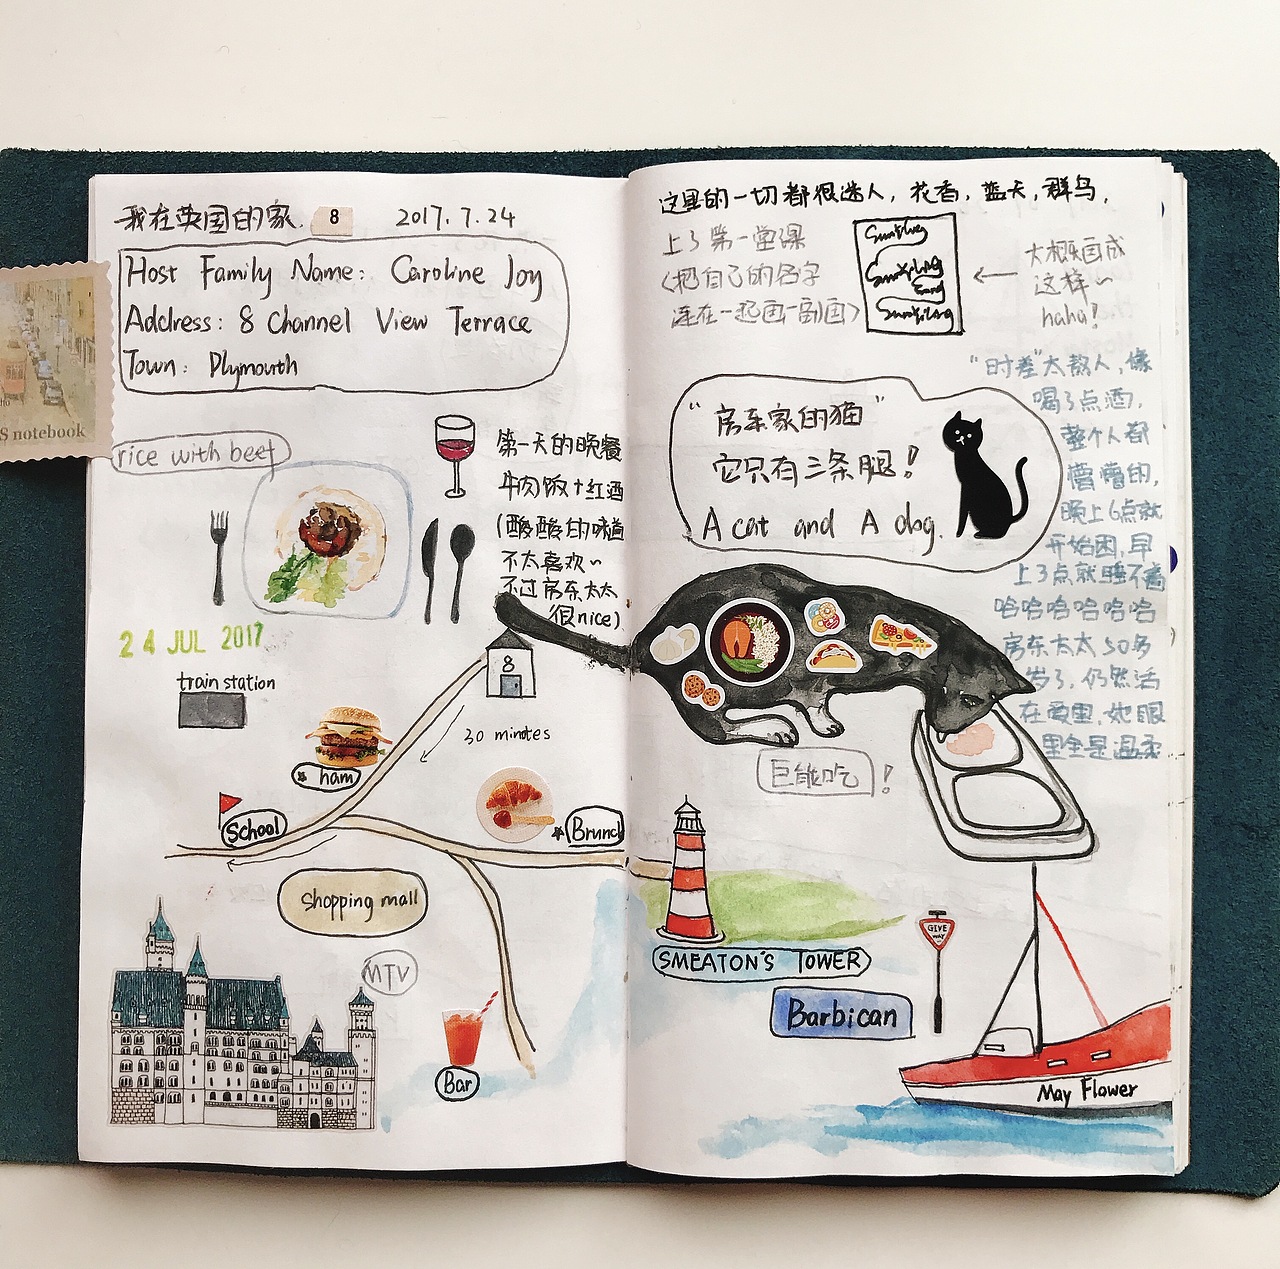 我在英国的家.
8
2017.7.24
Host Family Name: Caroline Joy
Address: 8 Channel View Terrace
Town: Plymouth
S notebook
rice with beef
第一天的晚餐
牛肉饭+红酒
(酸酸的味道
不太喜欢~
不过房东太太
很nice)
24 JUL 2017
train station
8
30 minutes
ham
School
Brunch
Shopping mall
MTV
Bar
这里的一切都很迷人,花香,蓝天,群鸟,
上了第一堂课
(把自己的名字
连在一起画一副画)
大概画成
这样~
haha!
"时差"太熬人,像
喝了点酒,
整个人都
懵懵的,
晚上6点就
开始困,早
上3点就睡不着
哈哈哈哈哈哈
房东太太50多
岁了,仍然活
在爱里,她眼
里全是温柔
"房东家的猫"
它只有三条腿!
A cat and A dog.
巨能吃!
SMEATON'S TOWER
GIVE
WAY
Barbican
May Flower